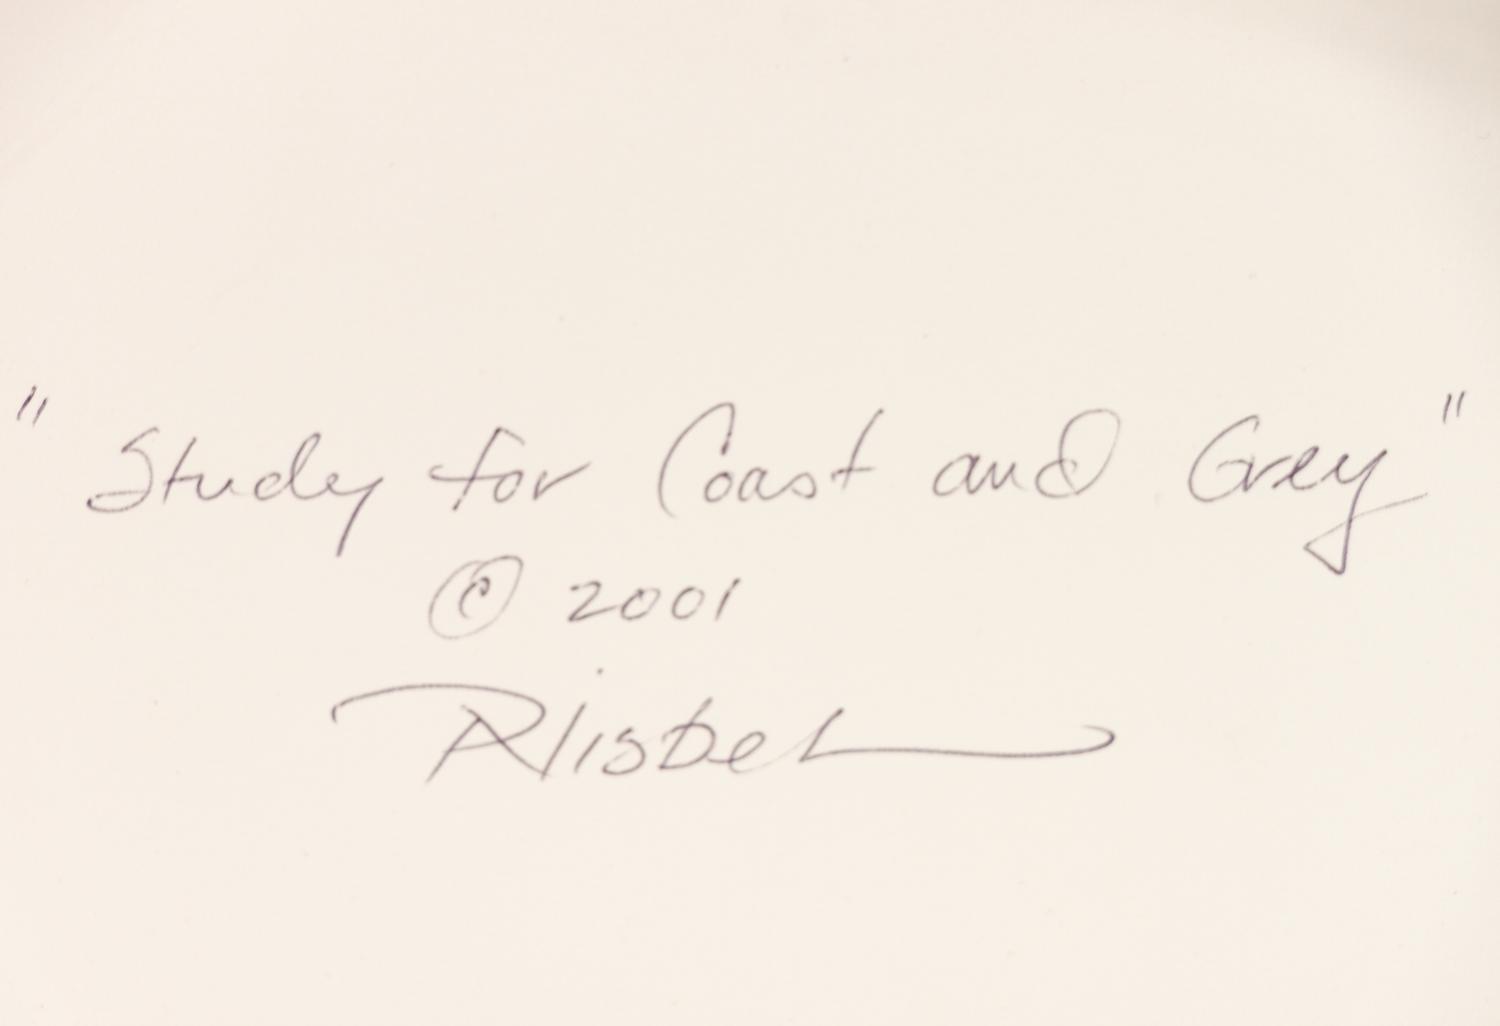 "Study for Coast and Grey"
© 2001